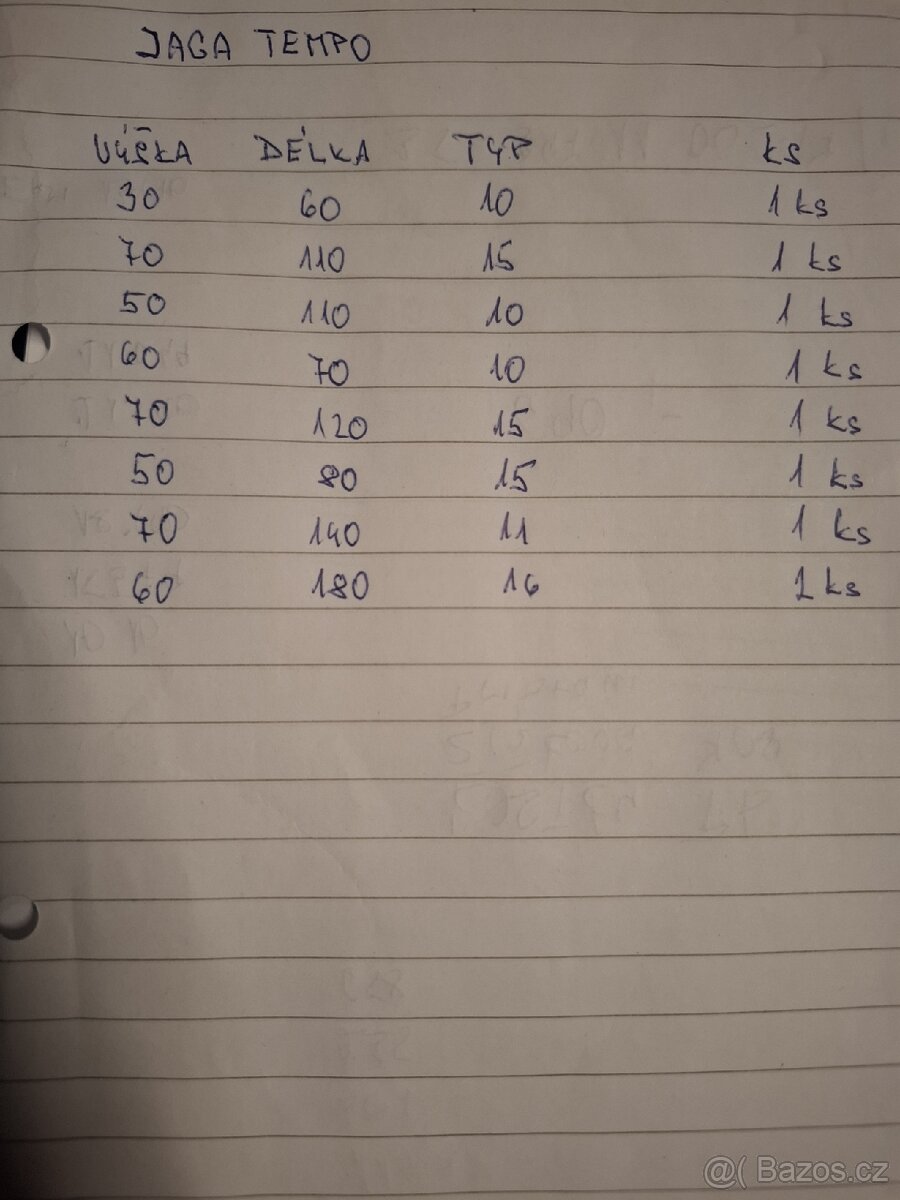 JAGA TEMPO
VÝŠKA DÉLKA TYP ks
30 60 10 1 ks
70 110 15 1 ks
50 110 10 1 ks
60 70 10 1 ks
70 120 15 1 ks
50 80 15 1 ks
70 140 11 1 ks
60 180 16 1 ks
@( Bazos.cz